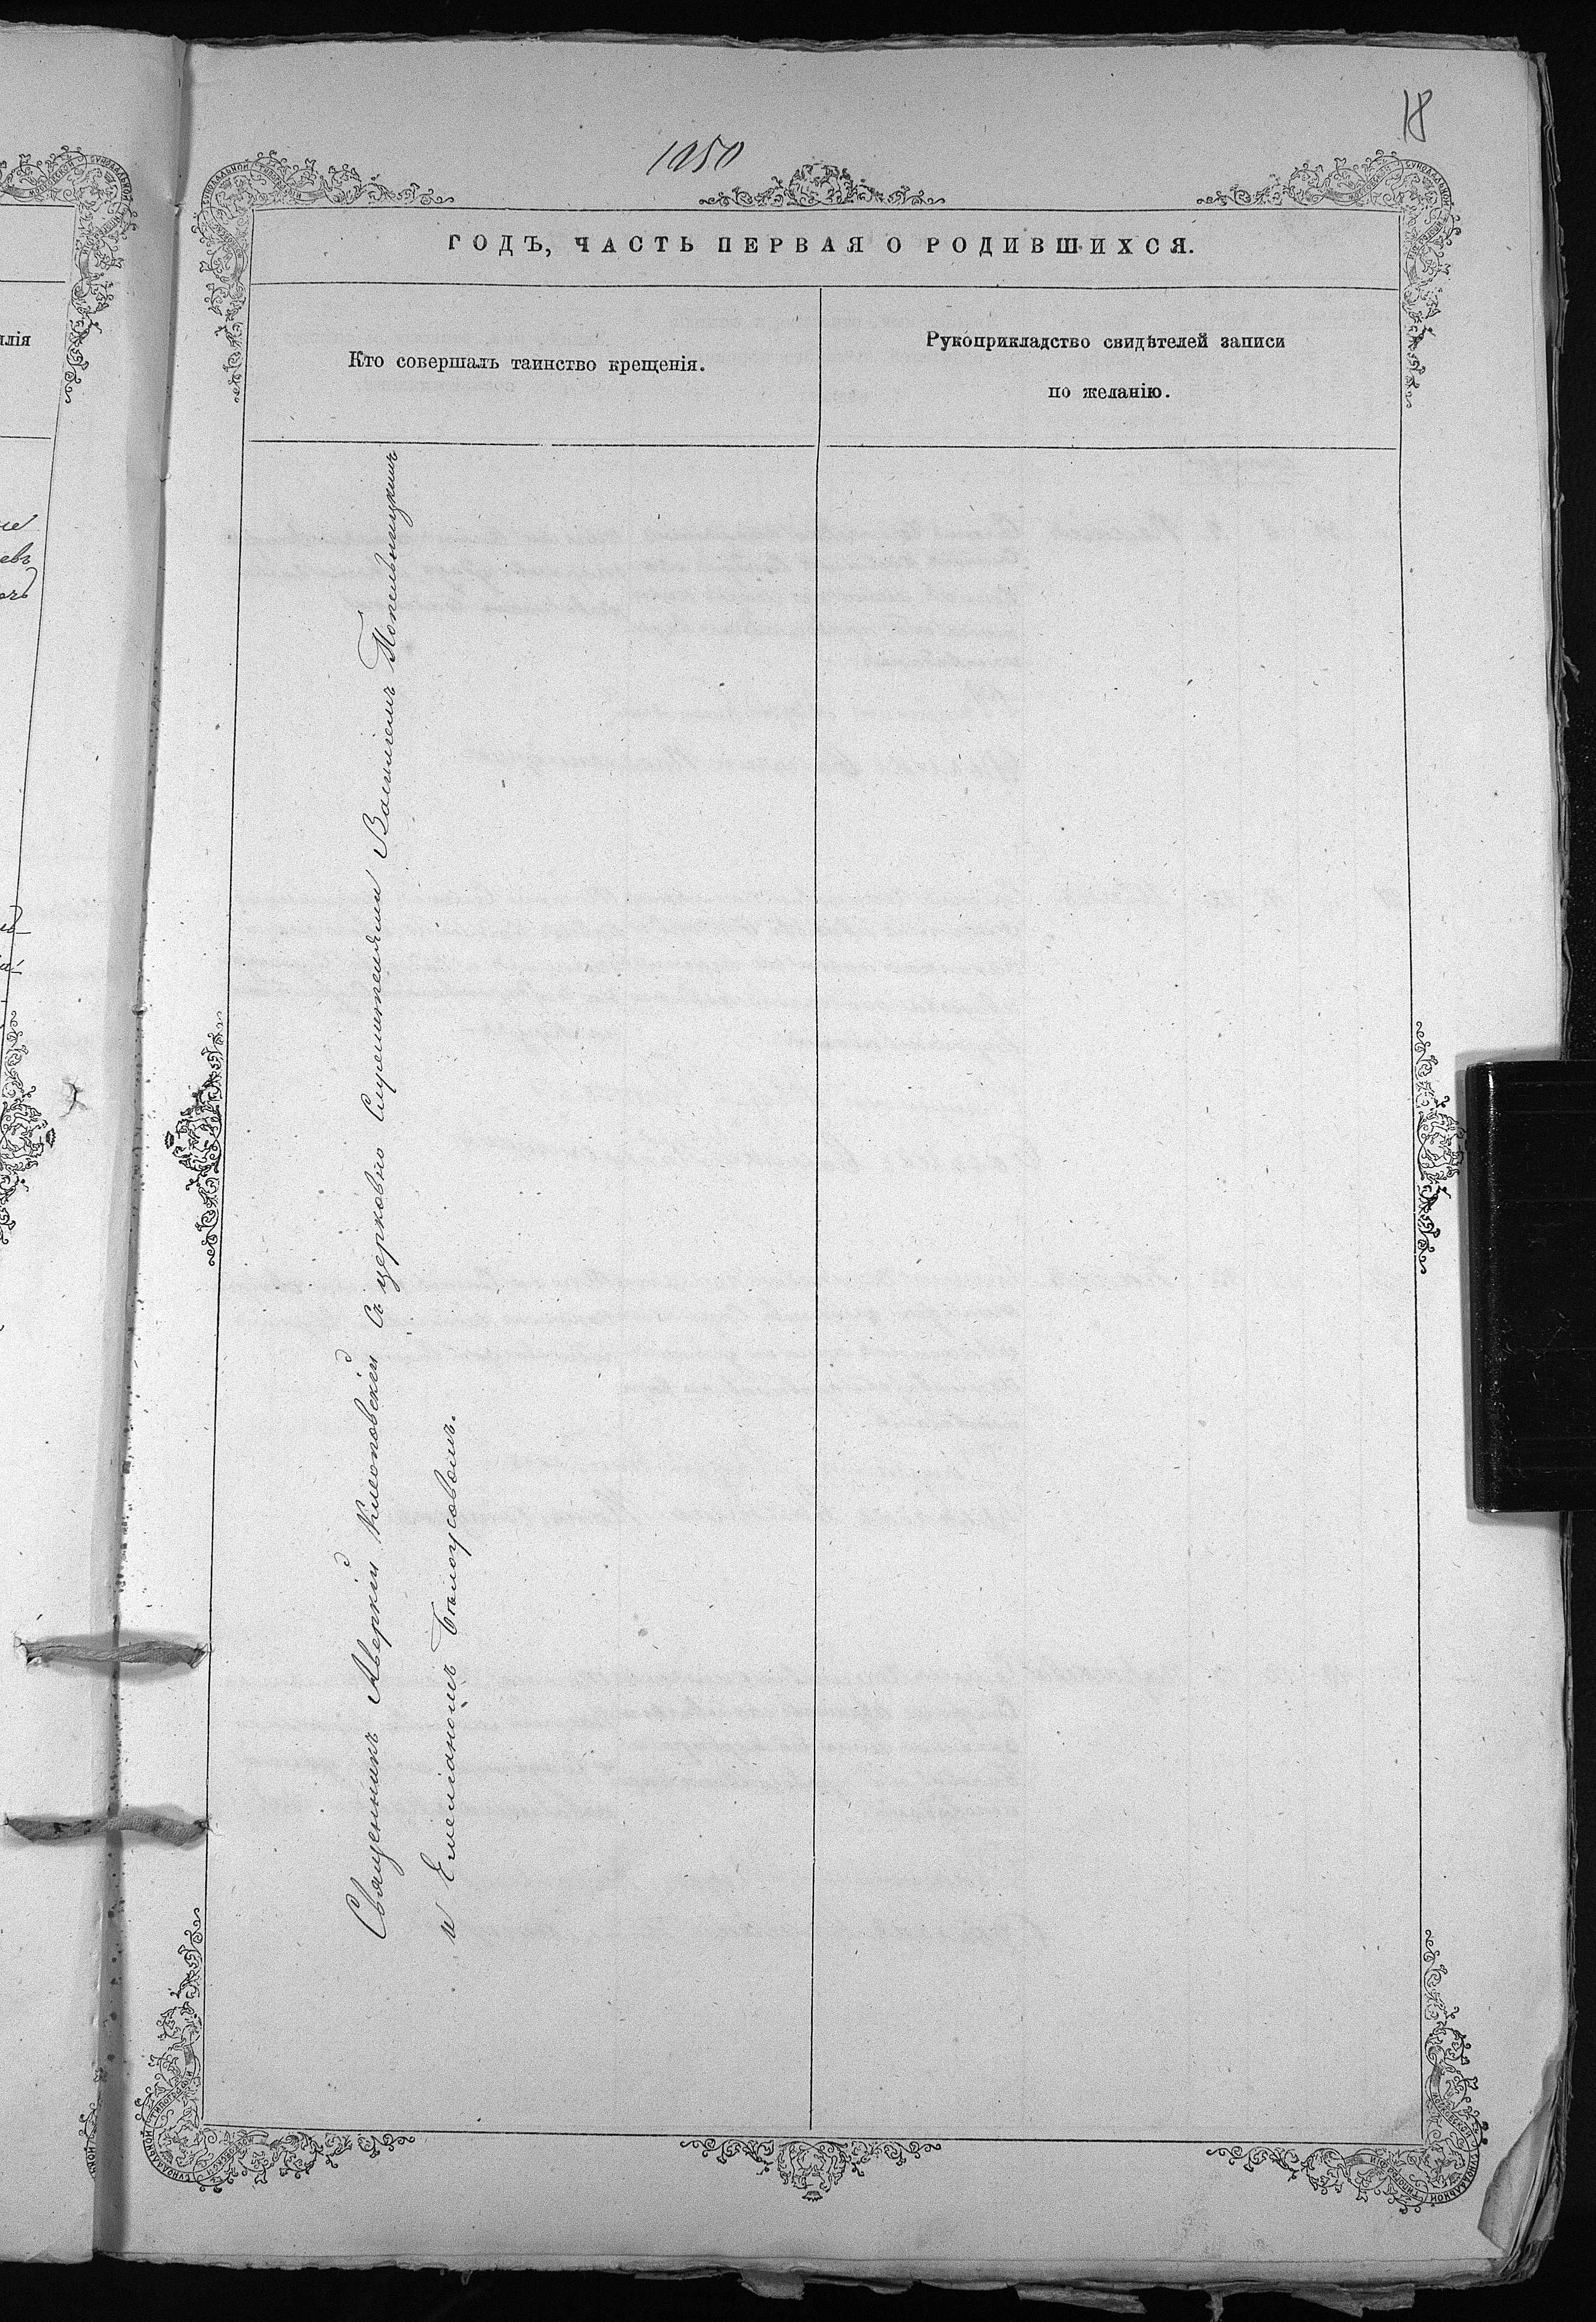 18
1050
ГОДЪ, ЧАСТЬ ПЕРВАЯ О РОДИВШИХСЯ.
Кто совершалъ таинство крещенія.
Рукоприкладство свидѣтелей записи
по желанію.
Священникъ Аверкій Клеоповскій съ церковно служителями Василіемъ Попельницкимъ
и Емеліаномъ Бѣлоусовымъ.